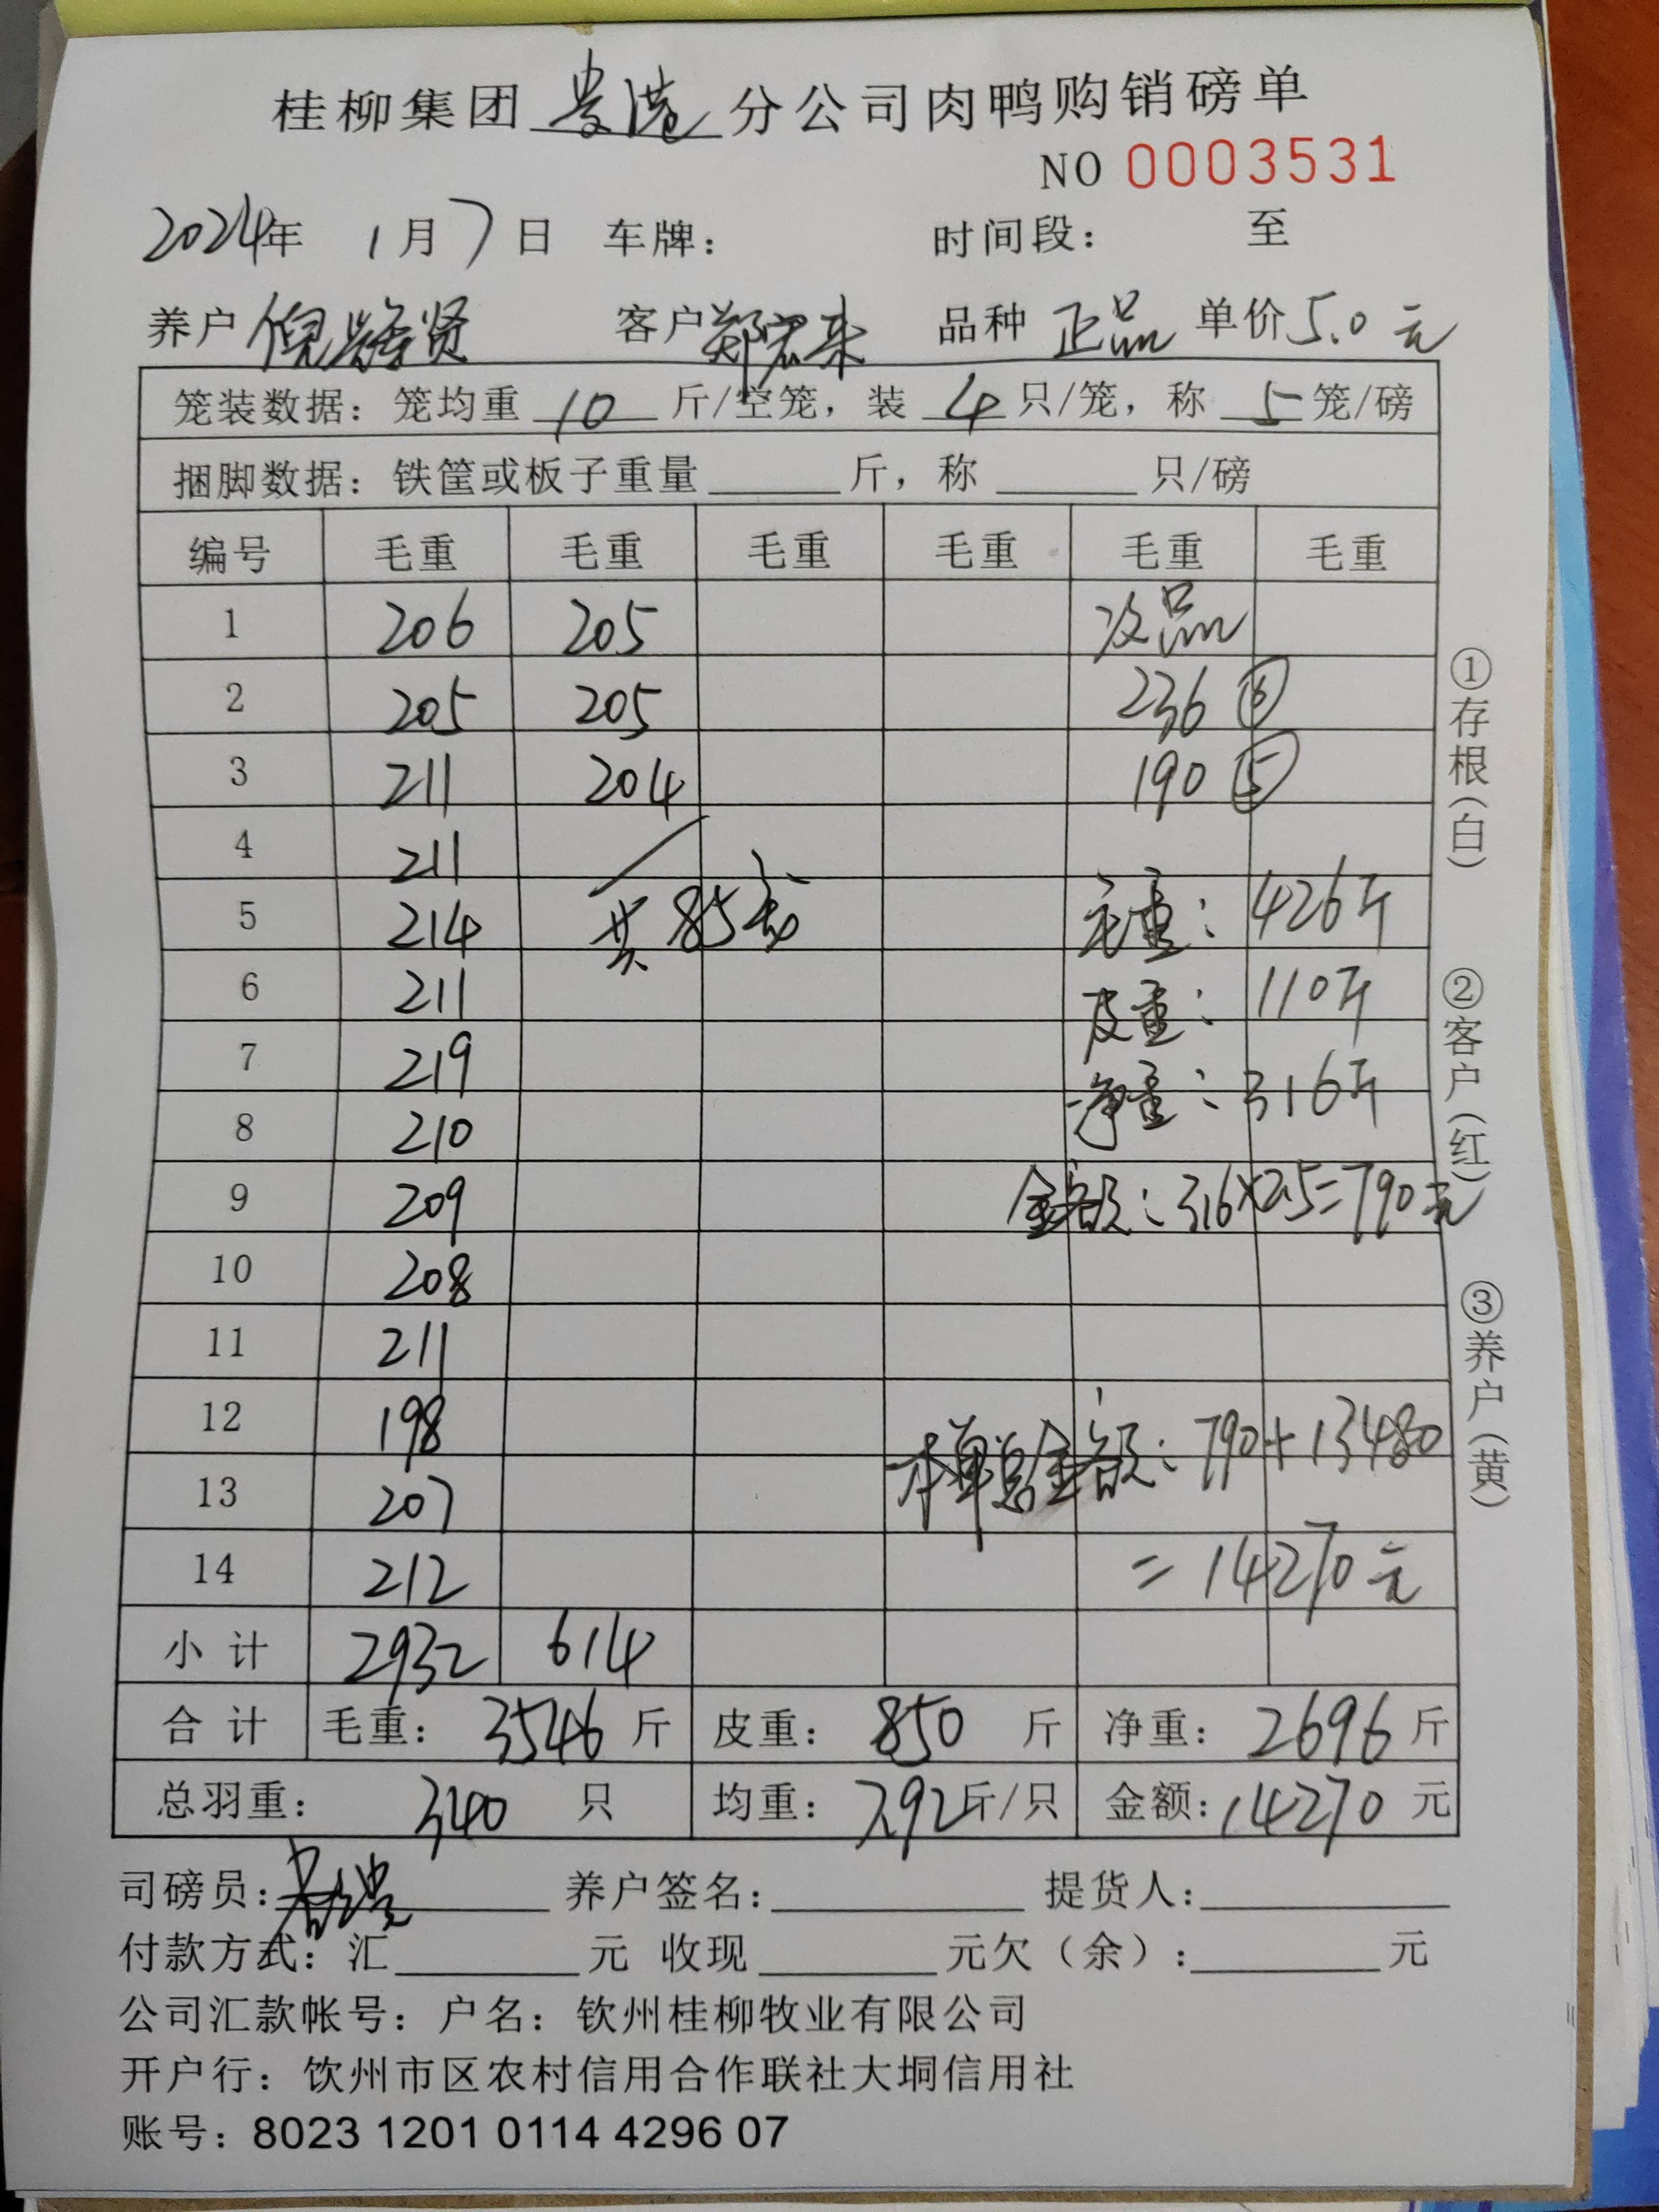 桂柳集团 贵港 分公司肉鸭购销磅单
NO 0003531
2024年 1月7日 车牌： 时间段： 至
养户 倪 贤 客户 郑宏来 品种 正品 单价 5.0 元
笼装数据：笼均重 10 斤/空笼，装 4 只/笼，称 5 笼/磅
捆脚数据：铁筐或板子重量______斤，称______只/磅
编号 毛重 毛重 毛重 毛重 毛重 毛重
1 206 205 次品
2 205 205 236 ⑥
3 211 204 190 ⑤
4 211
5 214 共85笼 毛重：426斤
6 211 皮重：110斤
7 219 净重：316斤
8 210
9 209 金额：316×2.5=790元
10 208
11 211
12 198 本单总金额：790+13480
13 207
14 212 =14270元
小计 2932 614
合计 毛重：3546斤 皮重：850斤 净重：2696斤
总羽重：340只 均重：7.92斤/只 金额：14270元
司磅员： 养户签名： 提货人：
付款方式：汇______元 收现______元欠（余）：______元
公司汇款帐号：户名：钦州桂柳牧业有限公司
开户行：饮州市区农村信用合作联社大垌信用社
账号：8023 1201 0114 4296 07
①存根（白）
②客户（红）
③养户（黄）